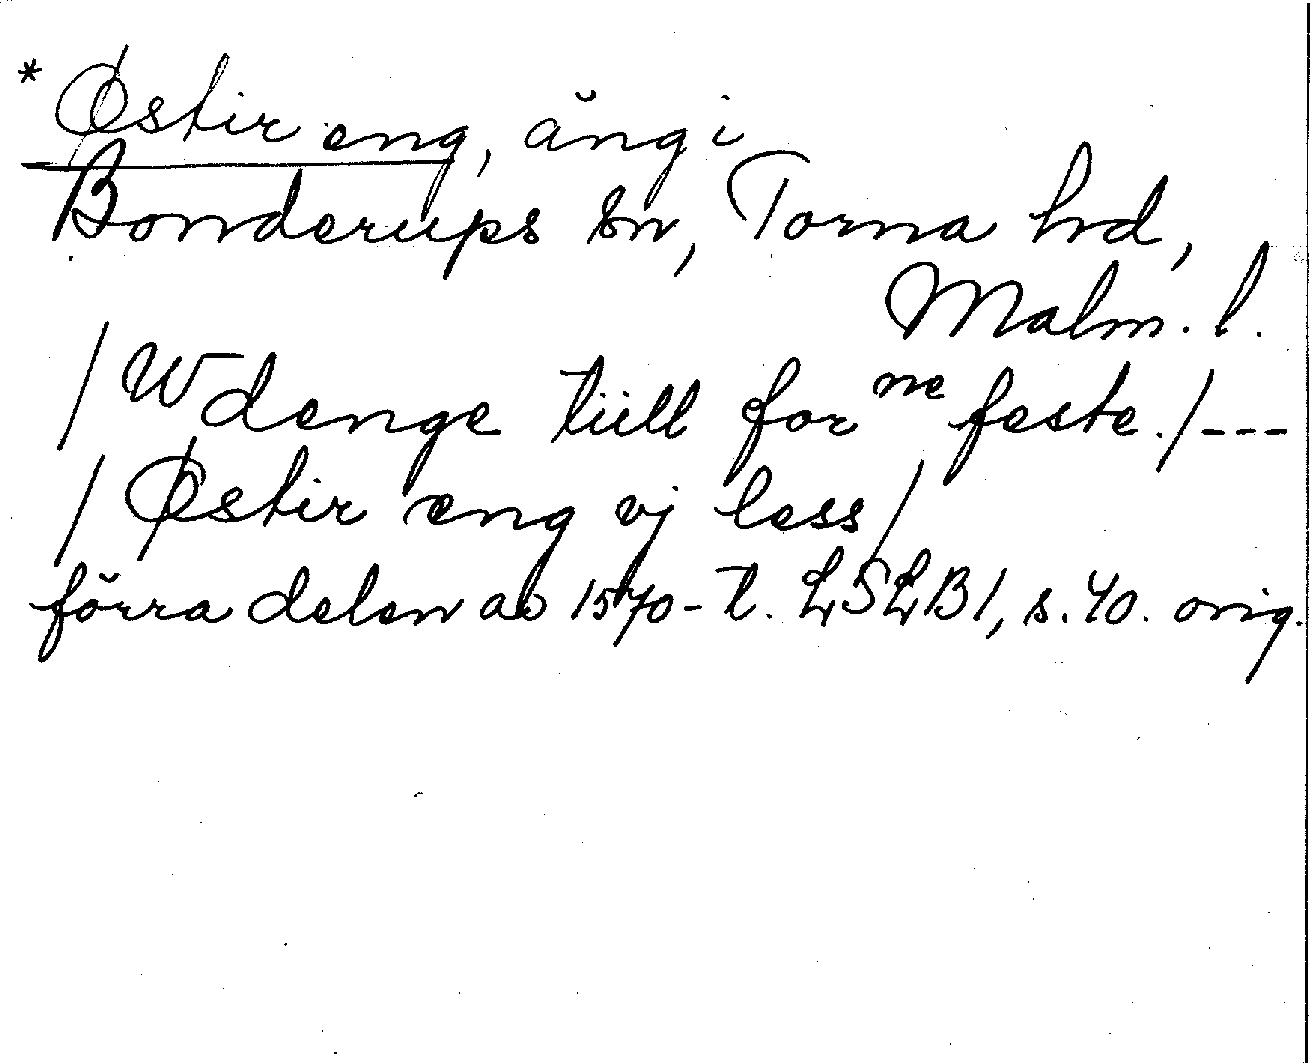 * Østir eng, äng i
Bonderups sn, Torna hrd,
Malm. l.
/ Wdenge tiill for ne feste. / ---
/ Østir eng vj less /
förra delen av 1570-t. LSLB1, s. 40. orig.